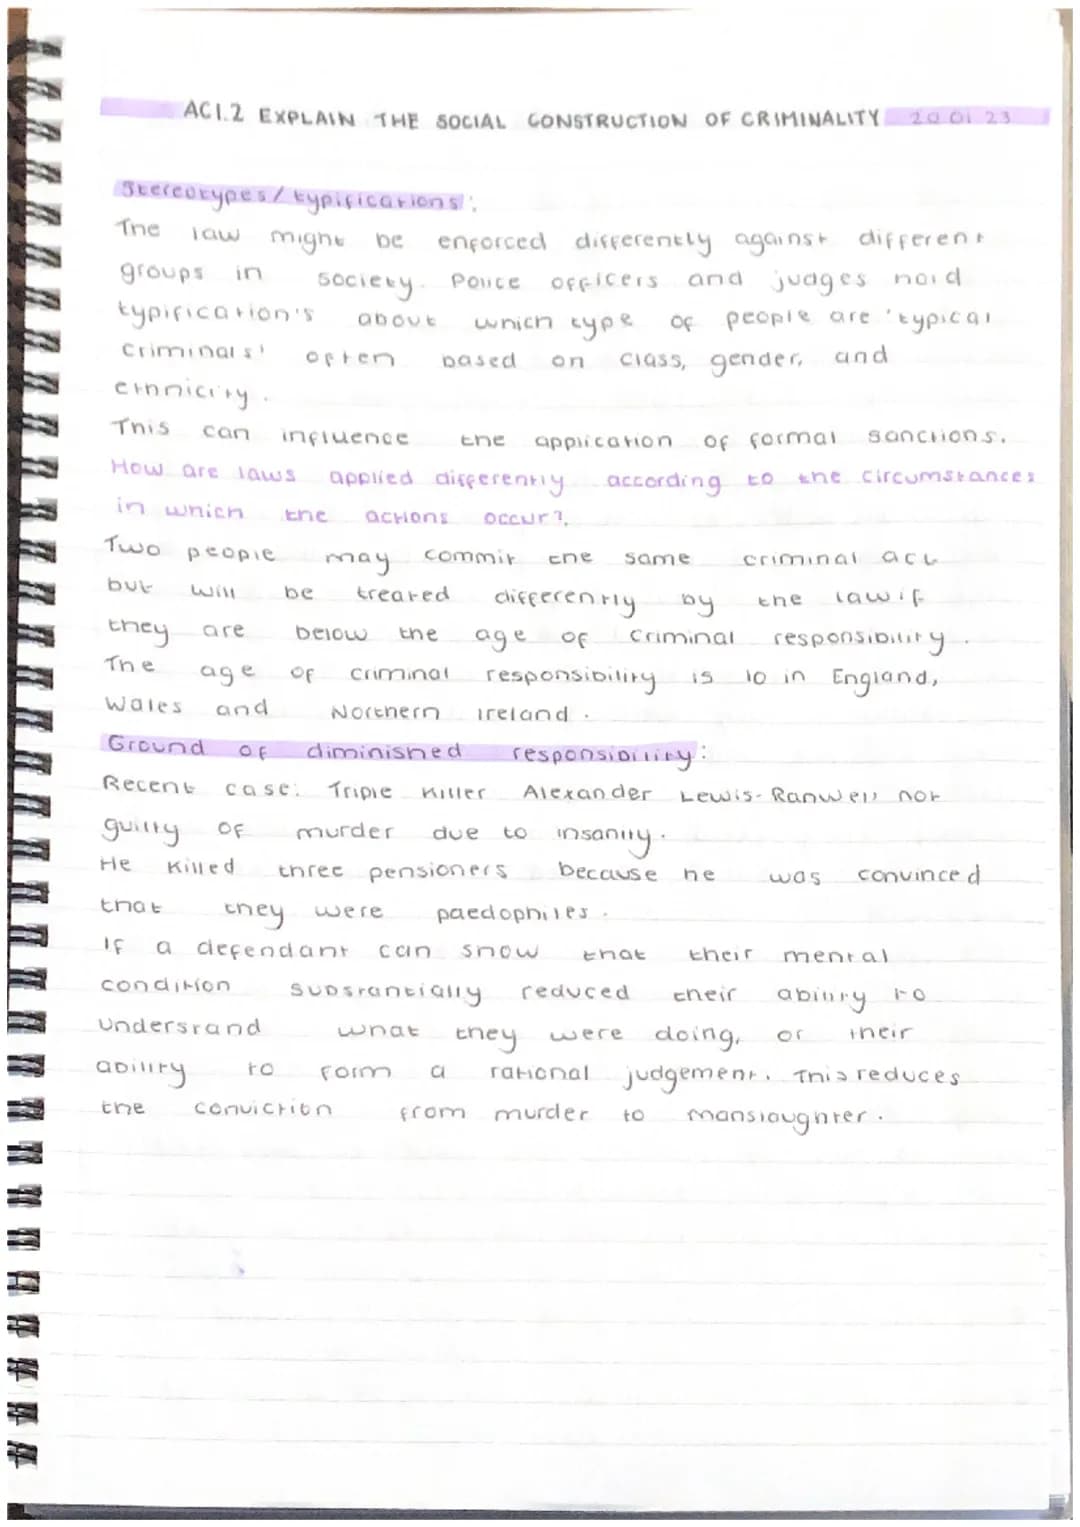 AC1.2 EXPLAIN THE SOCIAL CONSTRUCTION OF CRIMINALITY 20 01 23
Stereotypes/typifications:
The law might be enforced differently against different
groups in society. Police officers and judges hold
typification's about which type of people are 'typical
criminals' often based on class, gender, and
ethnicity.
This can influence the application of formal sanctions.
How are laws applied differently according to the circumstances
in which the actions occur?
Two people may commit the same criminal act
but will be treated differently by the law if
they are below the age of criminal responsibility.
The age of criminal responsibility is 10 in England,
Wales and Northern Ireland.
Ground of diminished responsibility:
Recent case: Triple killer Alexander Lewis-Ranwell not
guilty of murder due to insanity.
He killed three pensioners because he was convinced
that they were paedophiles.
If a defendant can show that their mental
condition substantially reduced their ability to
understand what they were doing, or their
ability to form a rational judgement. This reduces
the conviction from murder to manslaughter.